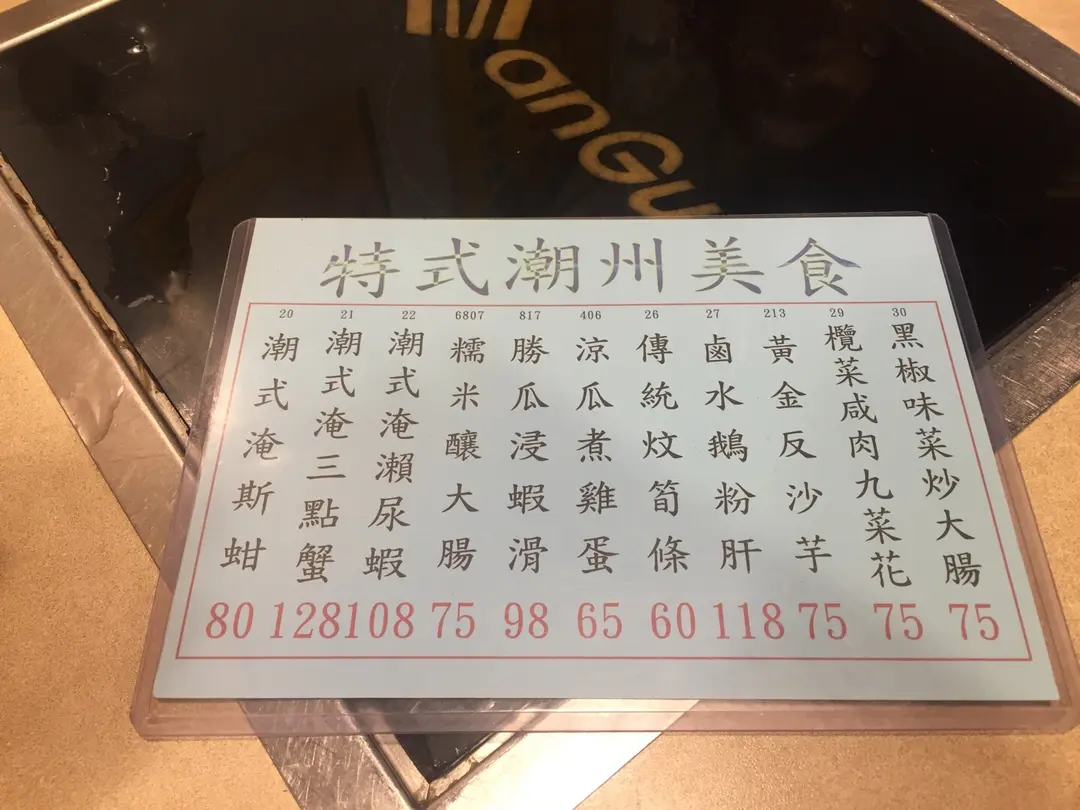 anGu
特式潮州美食
20 潮式淹斯蚶 80
21 潮式淹三點蟹 128
22 潮式淹瀨尿蝦 108
6807 糯米釀大腸 75
817 勝瓜浸蝦滑 98
406 涼瓜煮雞蛋 65
26 傳統炆筍條 60
27 鹵水鵝粉肝 118
213 黃金反沙芋 75
29 欖菜咸肉九菜花 75
30 黑椒味菜炒大腸 75